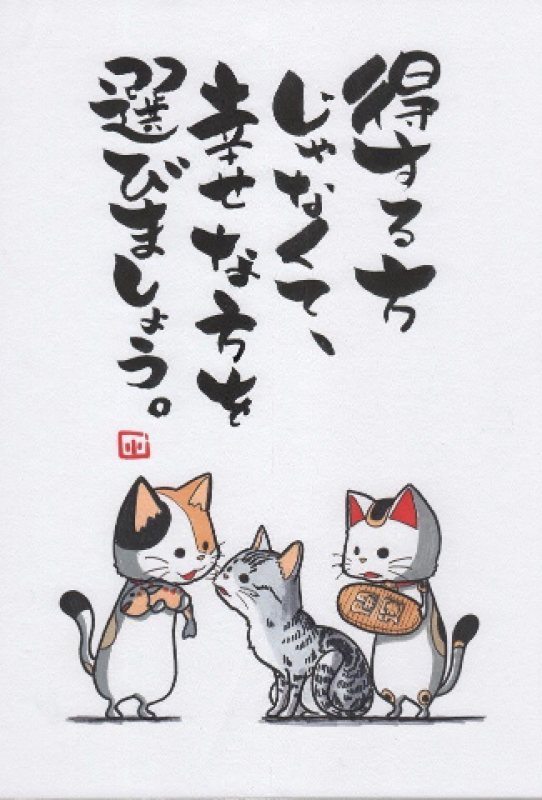 得する方
じゃなくて、
幸せな方を
選びましょう。